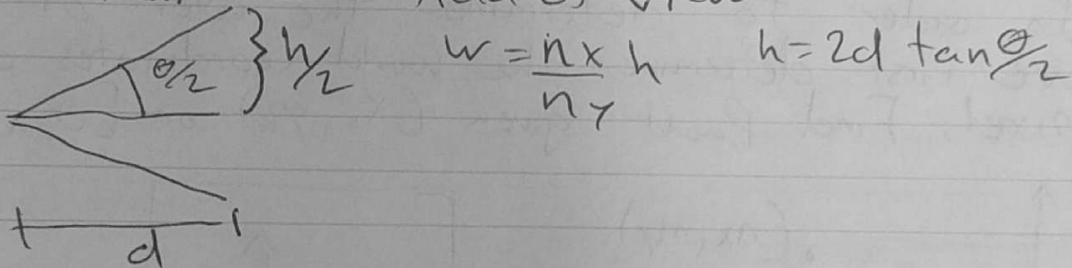 View
θ/2 } h/2 w = nx/ny h h = 2d tan θ/2
d